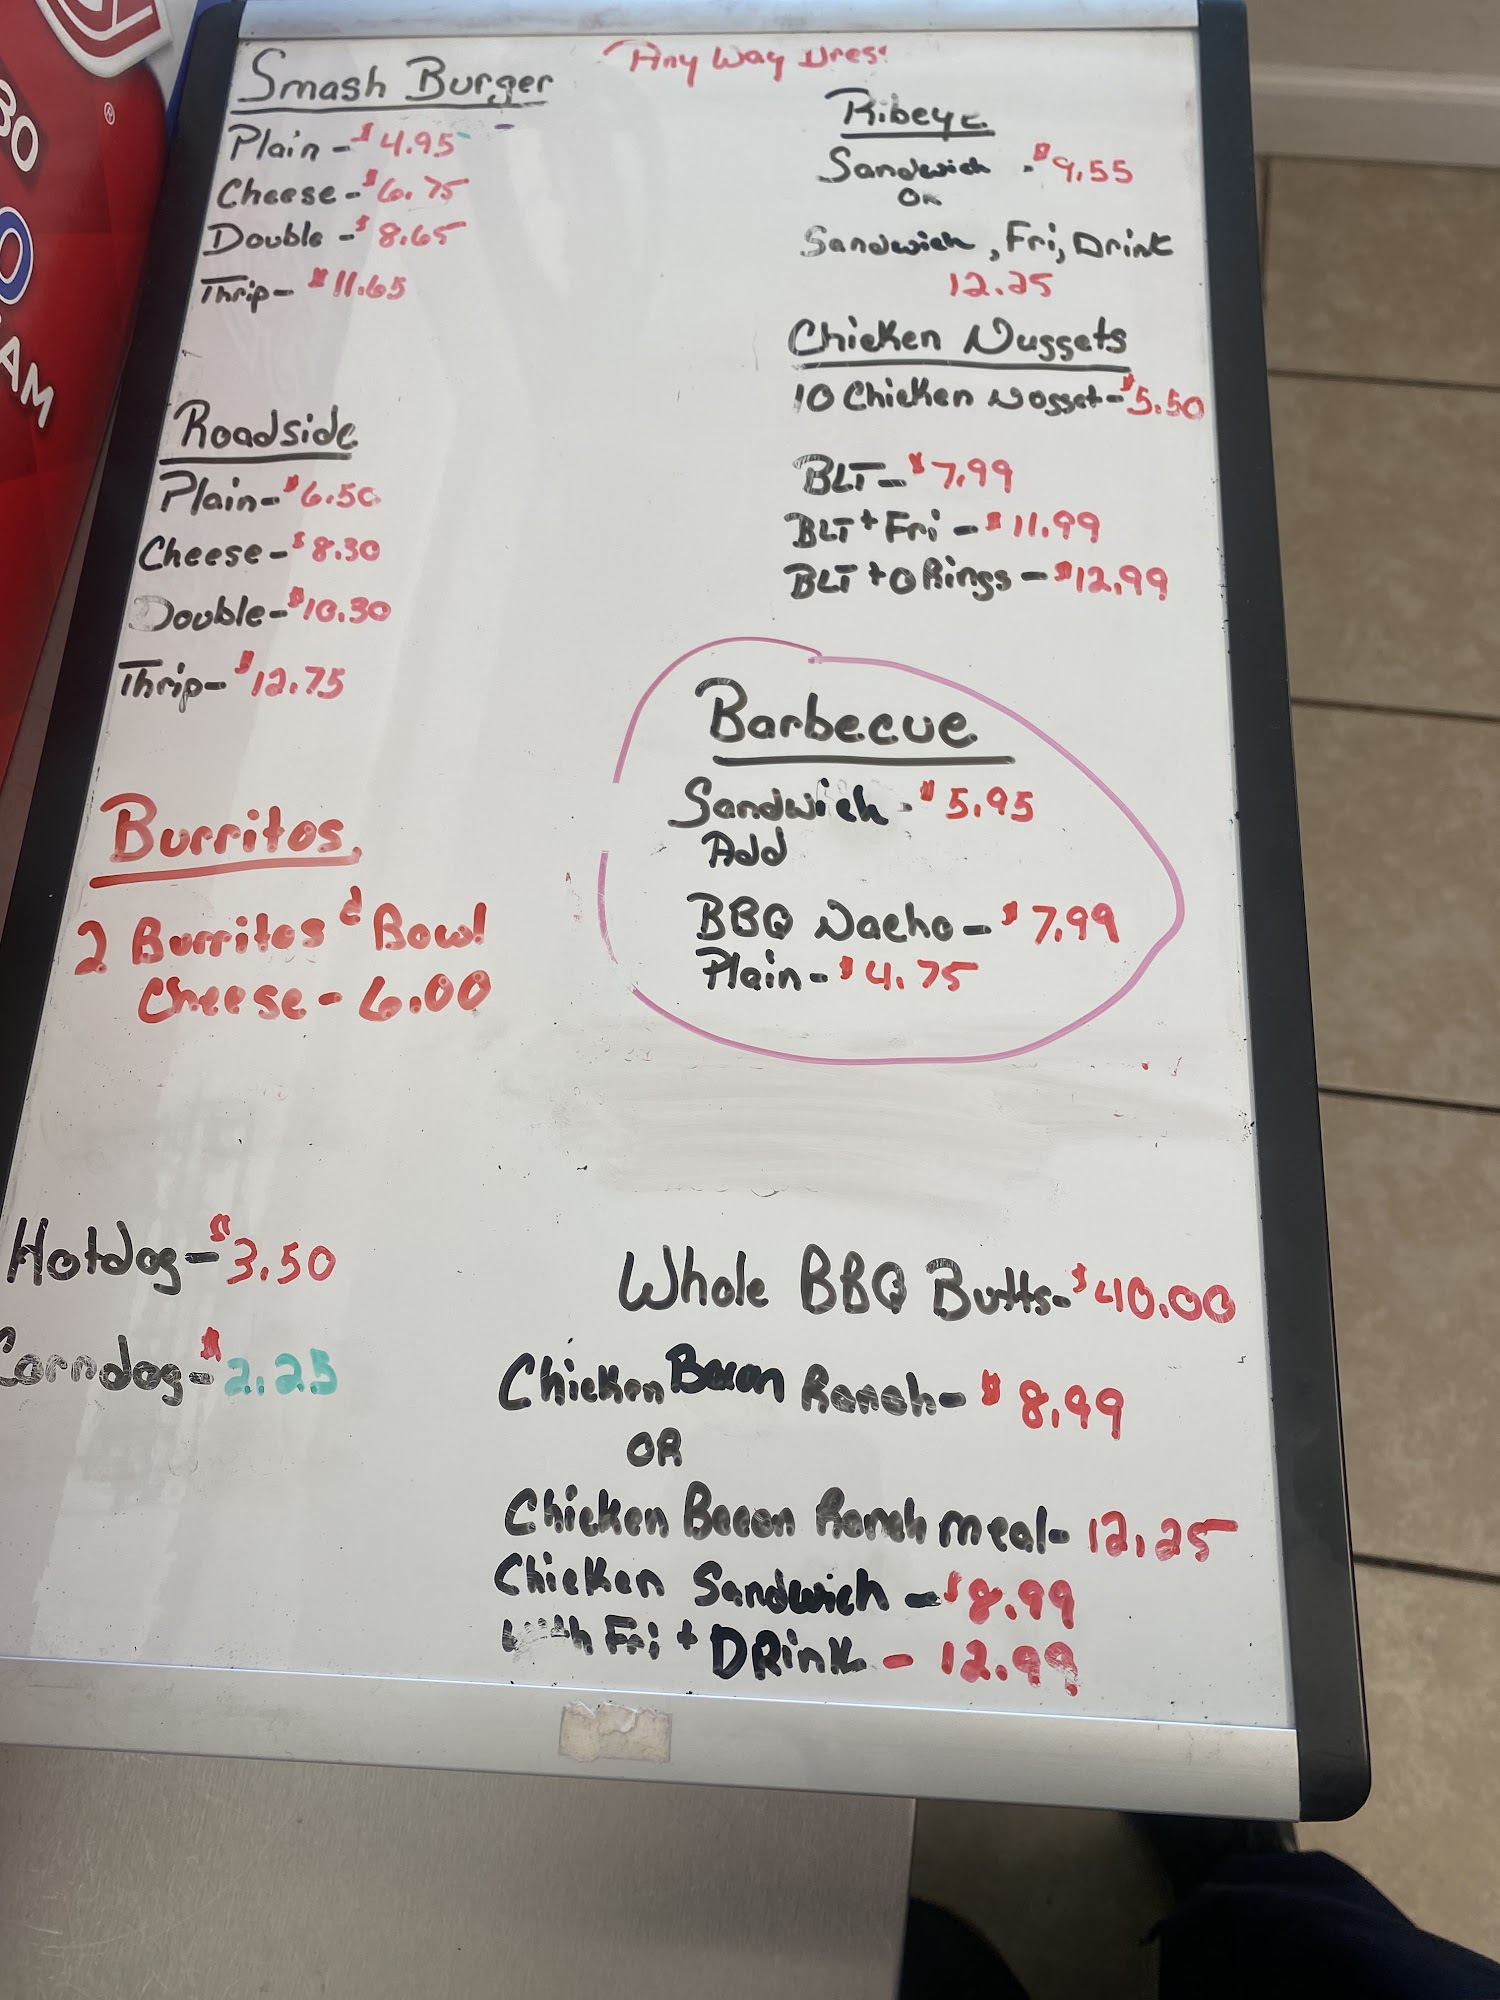 Smash Burger
Plain - $4.95
Cheese - $6.75
Double - $8.65
Thrip - $11.65
Roadside
Plain - $6.50
Cheese - $8.30
Double - $10.30
Thrip - $12.75
Burritos
2 Burritos & Bowl
Cheese - 6.00
Hotdog - $3.50
Corndog - $2.25
Any Way Dres
Ribeye
Sandwich - $9.55
OR
Sandwich, Fri, Drink
12.25
Chicken Nuggets
10 Chicken Nogget - $5.50
BLT - $7.99
BLT + Fri - $11.99
BLT + O Rings - $12.99
Barbecue
Sandwich - $5.95
Add
BBQ Nacho - $7.99
Plain - $4.75
Whole BBQ Butts - $40.00
Chicken Bacon Ranch - $8.99
OR
Chicken Bacon Ranch meal - 12.25
Chicken Sandwich - $8.99
with Fri + DRink - 12.99